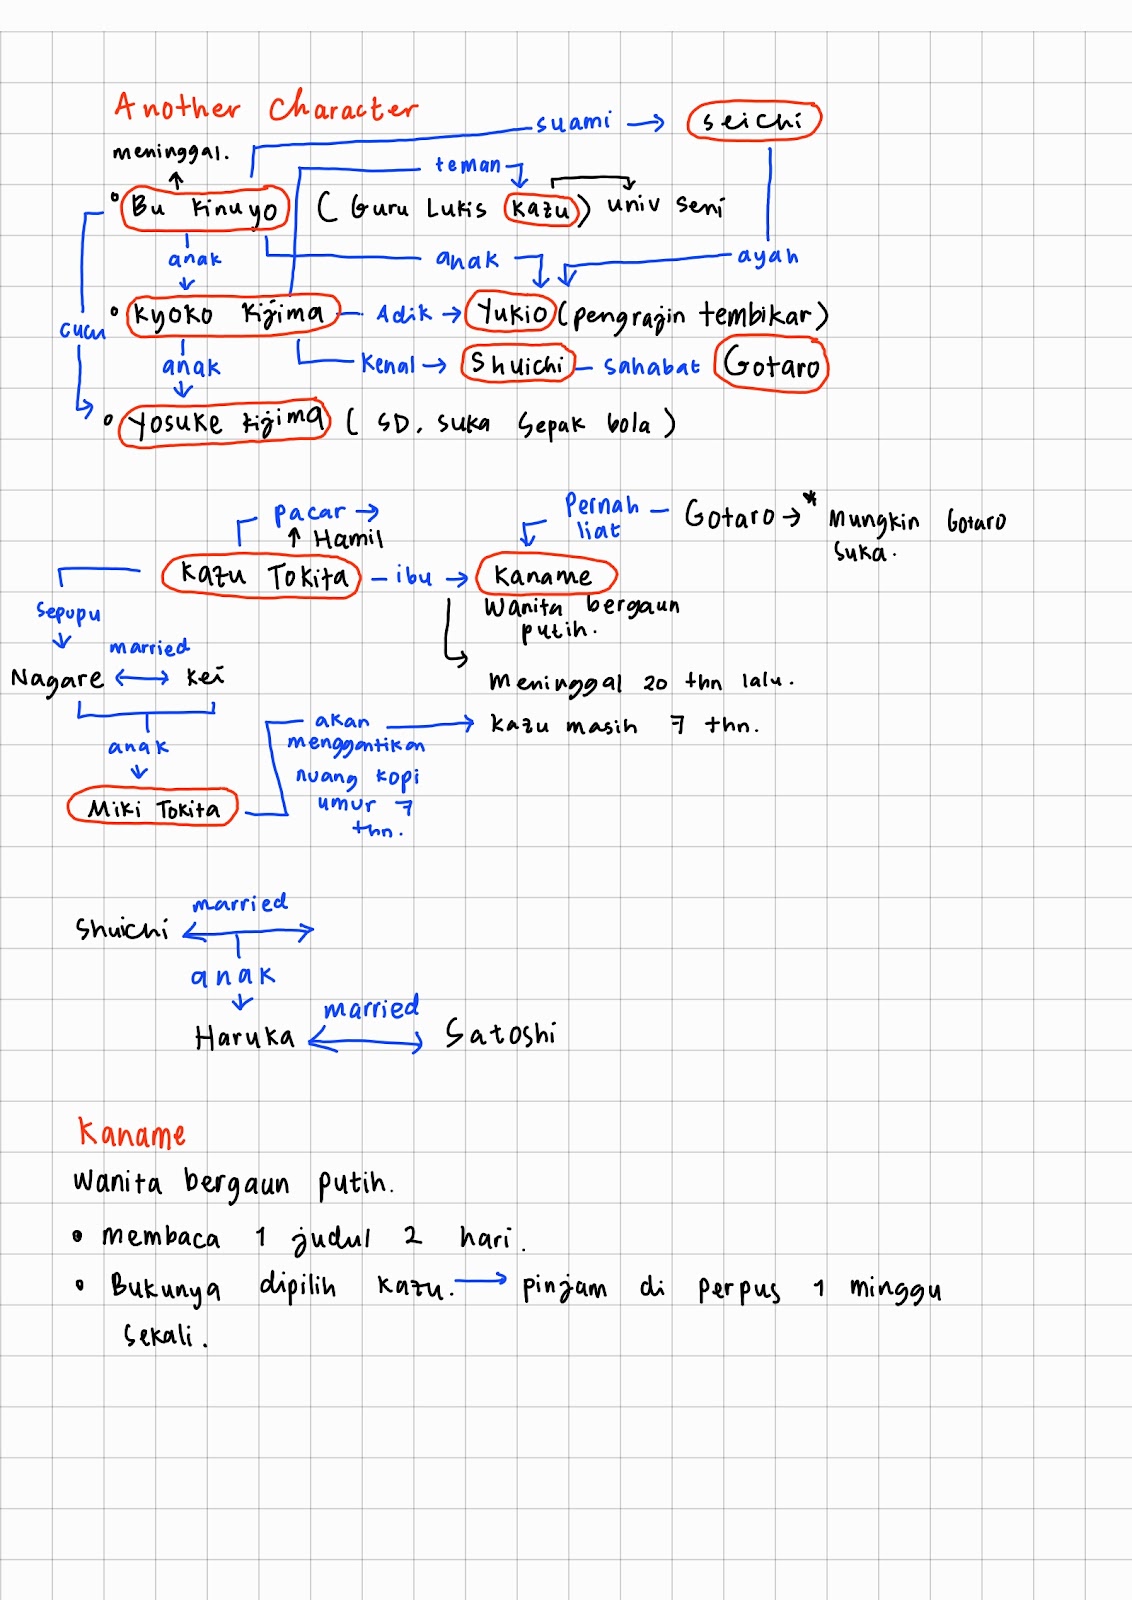 Another Character
suami → seichi
meninggal.
teman
• Bu Kinuyo (Guru Lukis Kazu) univ seni
anak
anak
ayah
• Kyoko Kijima – Adik → Yukio (pengrajin tembikar)
cucu
anak
Kenal → Shuichi – Sahabat Gotaro
• Yosuke Kijima ( SD, suka sepak bola )
pacar →
↑ Hamil
Pernah liat – Gotaro → * Mungkin Gotaro
suka.
Kazu Tokita – ibu → Kaname
Wanita bergaun
putih.
sepupu
married
Nagare ↔ Kei
Meninggal 20 thn lalu.
akan → Kazu masih 7 thn.
menggantikan
nuang kopi
umur 7
thn.
anak
Miki Tokita
married
Shuichi ↔
anak
married
Haruka ↔ Satoshi
Kaname
Wanita bergaun putih.
• membaca 1 judul 2 hari.
• Bukunya dipilih Kazu. → pinjam di perpus 1 minggu
sekali.